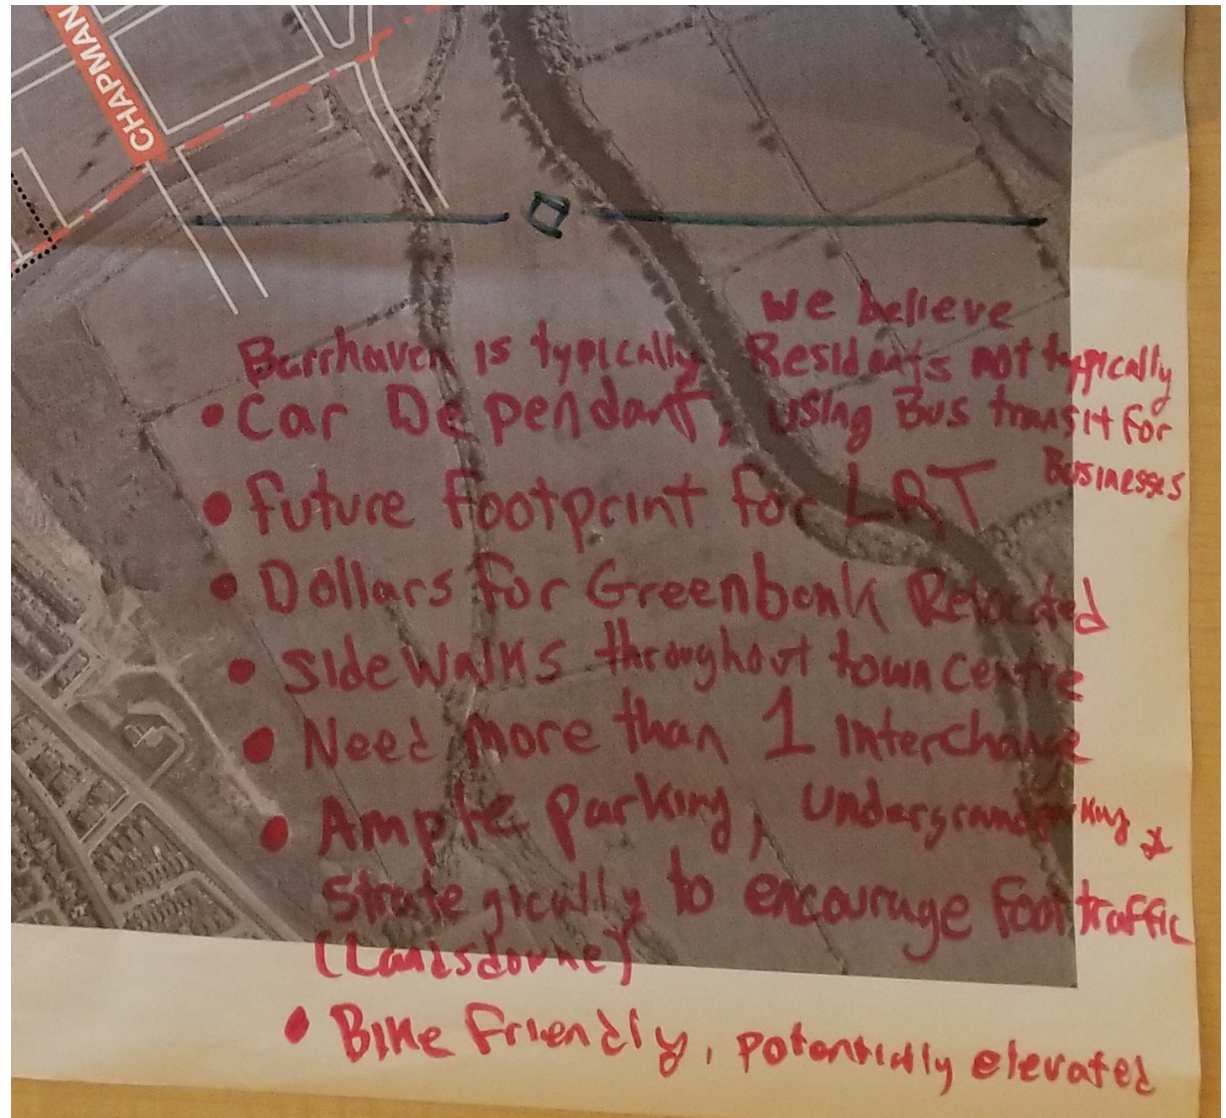 CHAPMAN
we believe
Barrhaven is typically Residents not typically
• Car Dependant, using Bus transit for
Businesses
• Future Footprint for LRT
• Dollars for Greenbank Relocated
• Sidewalks throughout town centre
• Need more than 1 interchange
• Ample parking, underground parking &
strategically to encourage foot traffic
(Landsdowne)
• Bike Friendly, potentially elevated